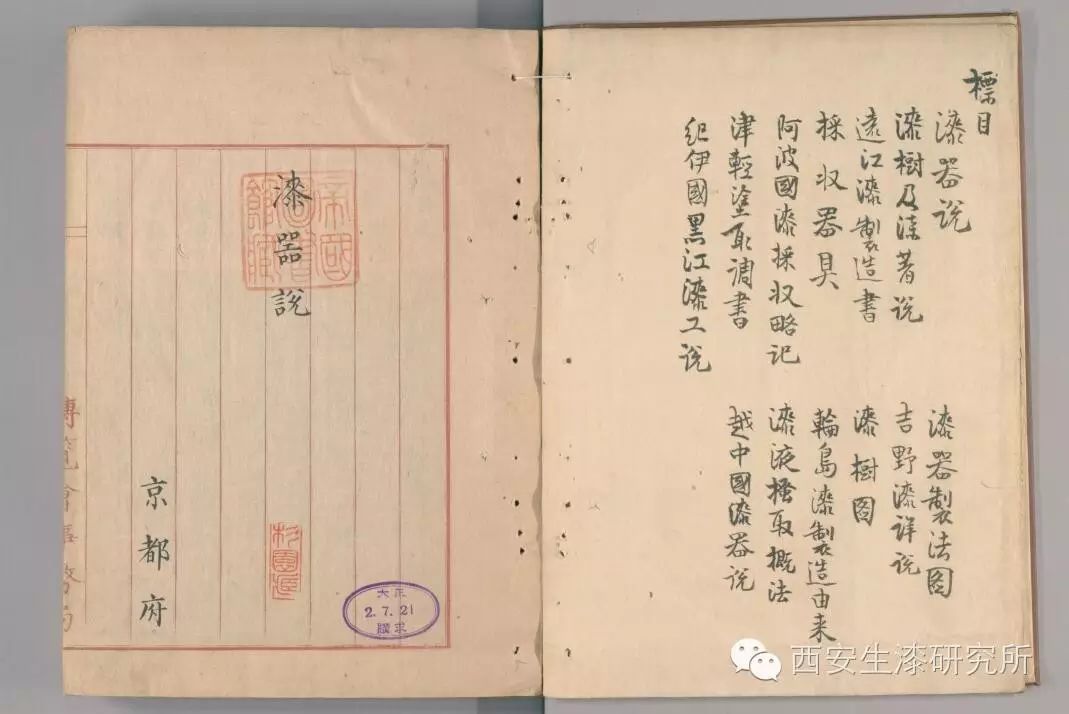 標目
漆器说
漆器製法図
漆樹及漆著说
吉野漆详说
遠江漆製造書
漆樹图
採収器具
輪島漆製造由来
阿波國漆採収略记
漆液搔取概法
津輕塗取调書
越中國漆器说
紀伊國黒江漆工说
漆器説
帝國圖書館藏
杉園蔵
大正
2.7.21
購求
京都府
博覧會事務局
西安生漆研究所